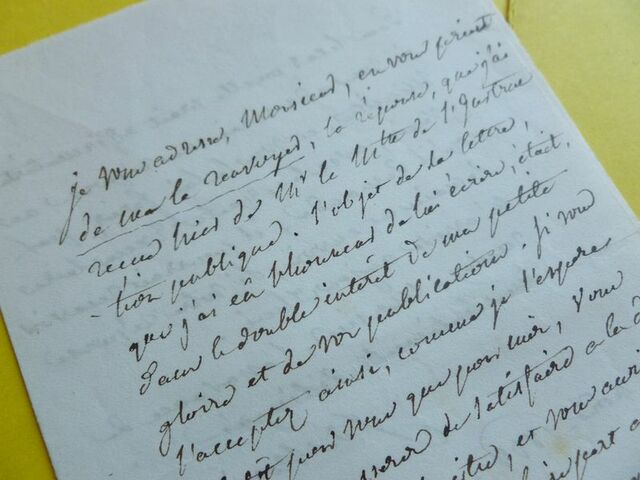 je vous adresse, Monsieur, en vous priant
de me la renvoyer, la réponse, que j'ai
recue hier de Mr le Mtre de l'Instruc
-tion publique. L'objet de la lettre,
que j'ai eû l'honneur de lui écrire, était,
dans le double intérêt de ma petite
gloire et de vos publications. Si vous
l'acceptez ainsi, comme je l'espère
pour vous que pour moi, vous
de satisfaire a la d
et vous
part a